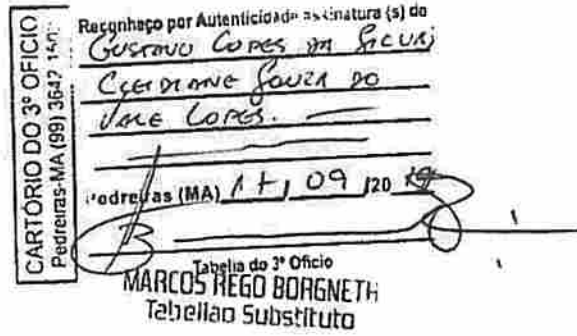 CARTÓRIO DO 3º OFICIO
Pedreiras-MA (99) 3642
Reconheço por Autenticidade assinatura (s) do
GUSTAVO LOPES DA SILVA
CLEIDIANE SOUZA DO
VALE LOPES.
Pedreiras (MA) 17, 09 /20
Tabeliã do 3º Oficio
MARCOS REGO BORGNETH
Tabelião Substituto